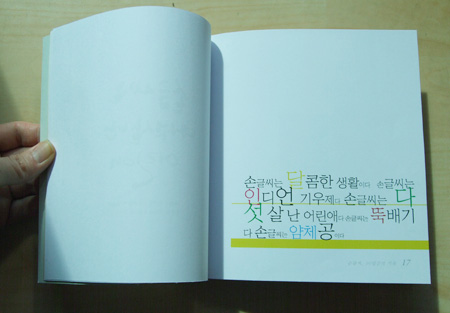 손글씨는 달콤한 생활이다 손글씨는
인디언 기우제다 손글씨는 다
섯 살 난 어린애다 손글씨는 뚝배기
다 손글씨는 얌체공이다
17